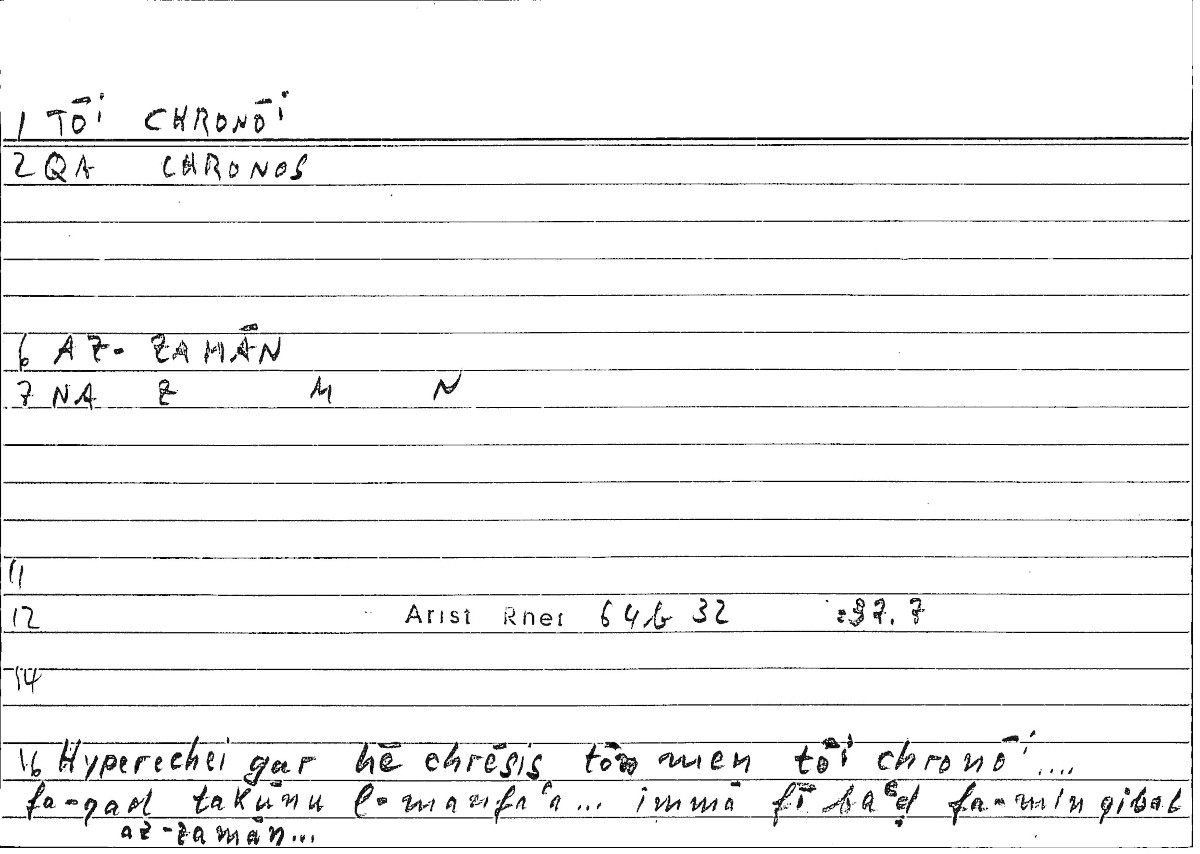 1 TŌI CHRONŌI
2 QA CHRONOS
6 AZ- ZAMĀN
7 NA Z M N
11
12 Arist Rhet 64b 32 :97.7
14
16 Hyperechei gar hē chrēsis tōn men tōi chronōi....
fa-qad takūnu l-manfaʿa... immā fī baʿḍ fa-min qibal
az-zamān...